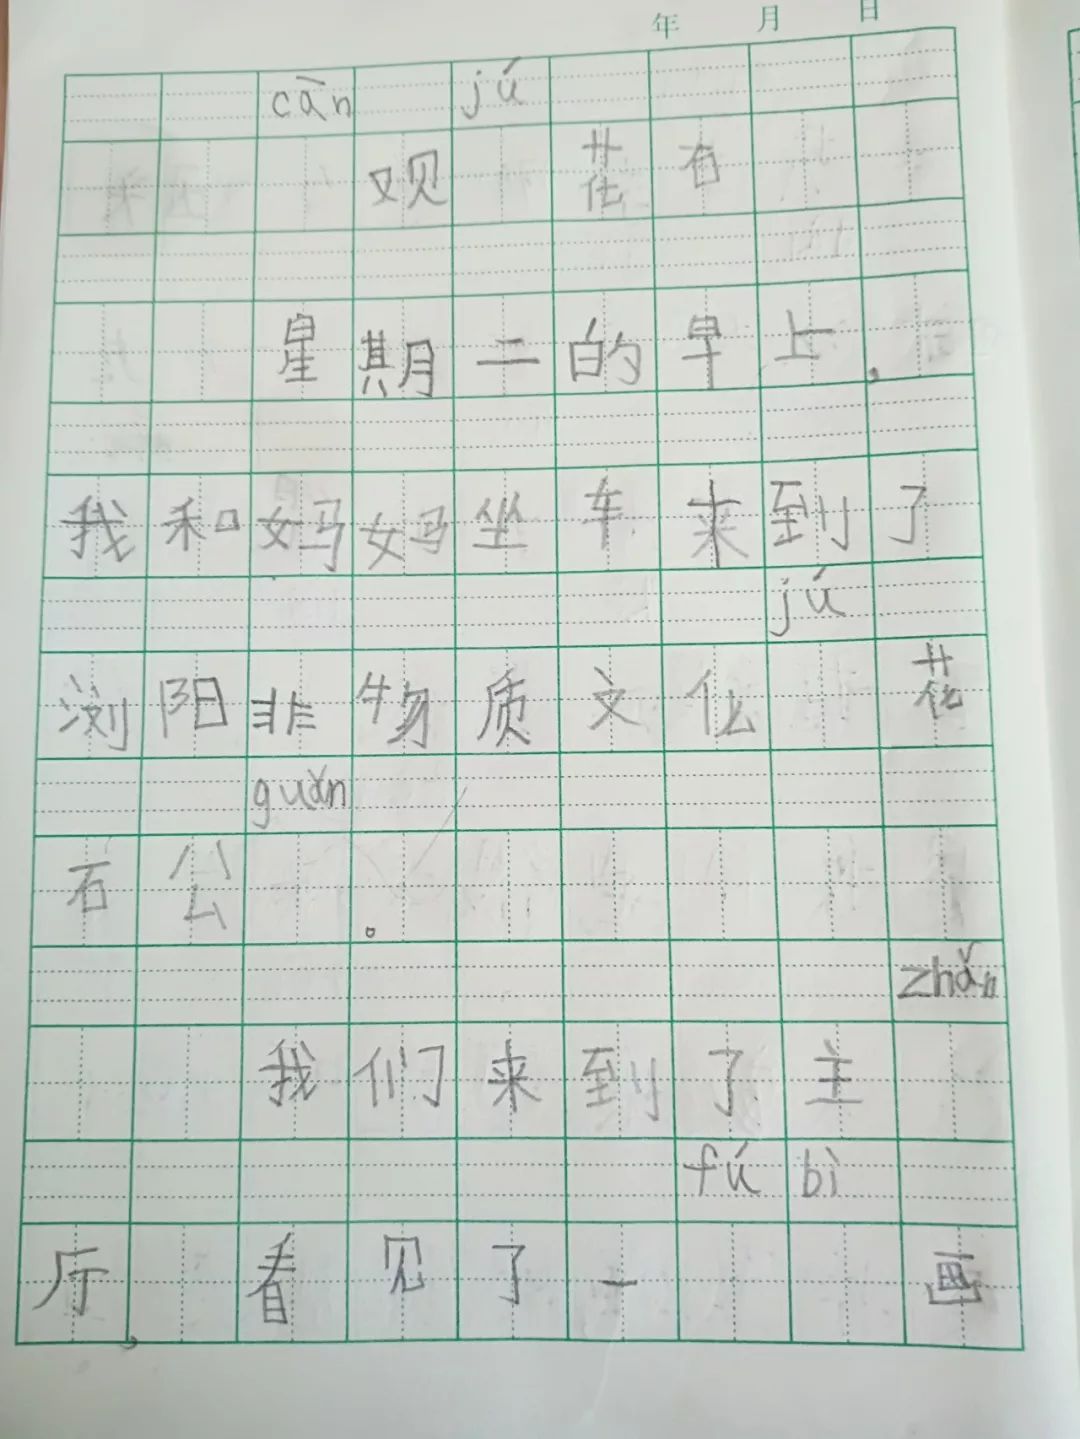 年 月 日
cān jú
观 花石
星期二的早上，
我和妈妈坐车来到了
jú
浏阳非物质文化 花
guǎn
石公 。
zhǎn
我们来到了主
fú bì
厅，看见了一 画